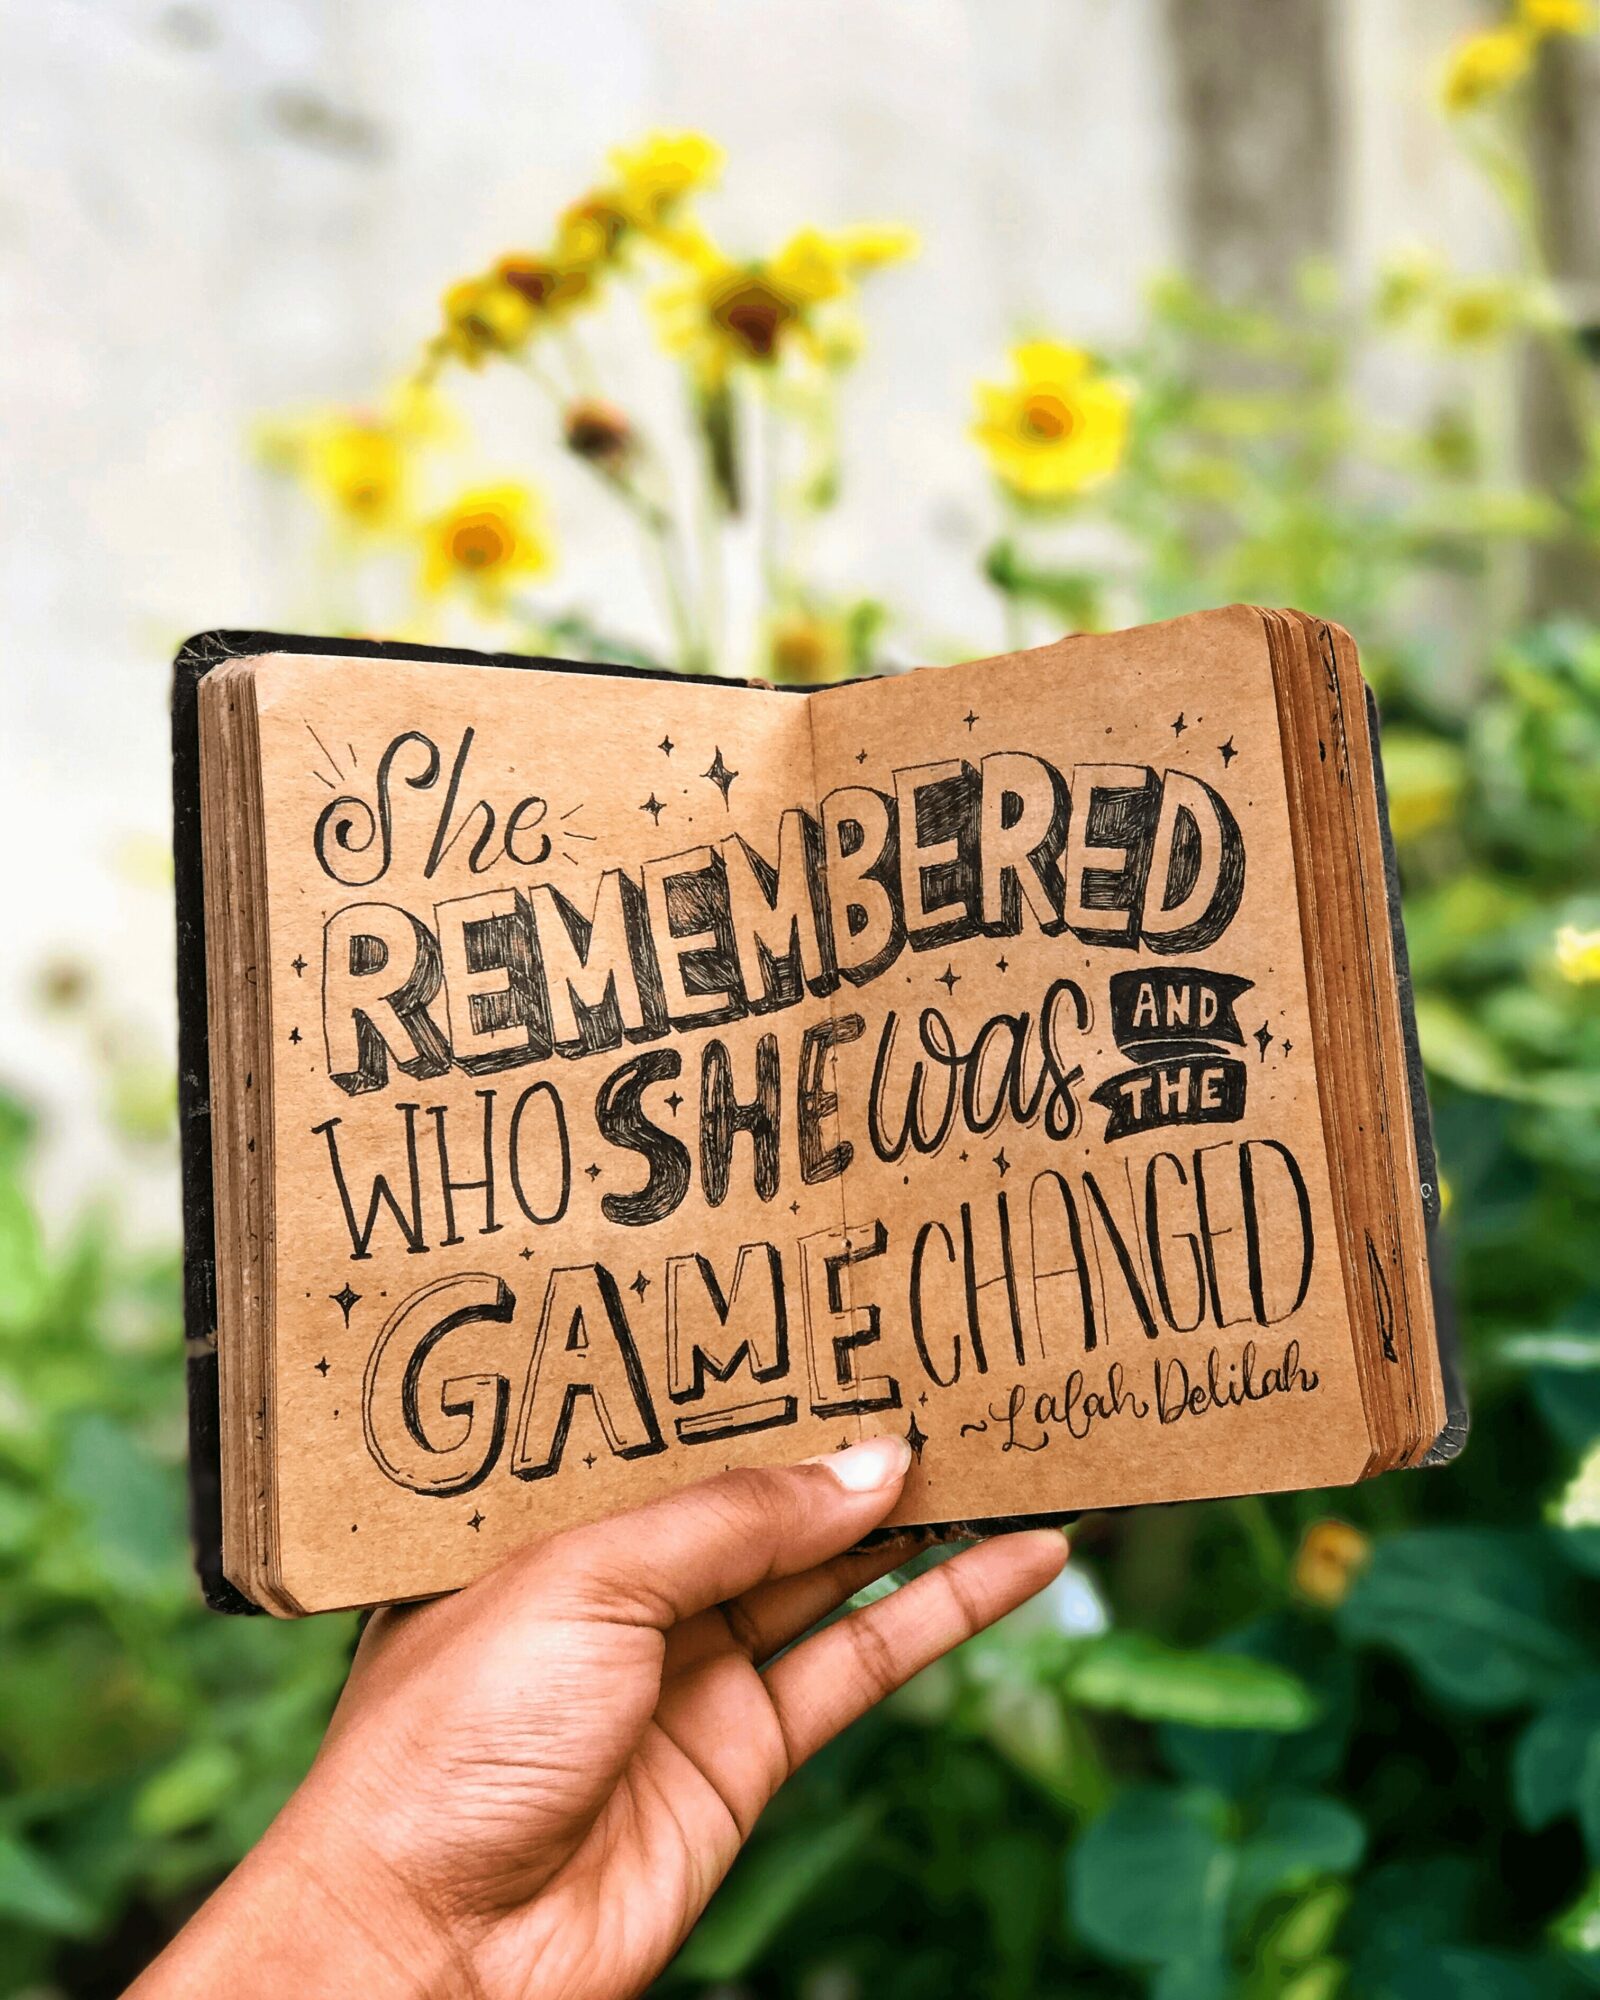 She
REMEMBERED
WHO SHE was AND THE
GAME CHANGED
~Lalah Delilah